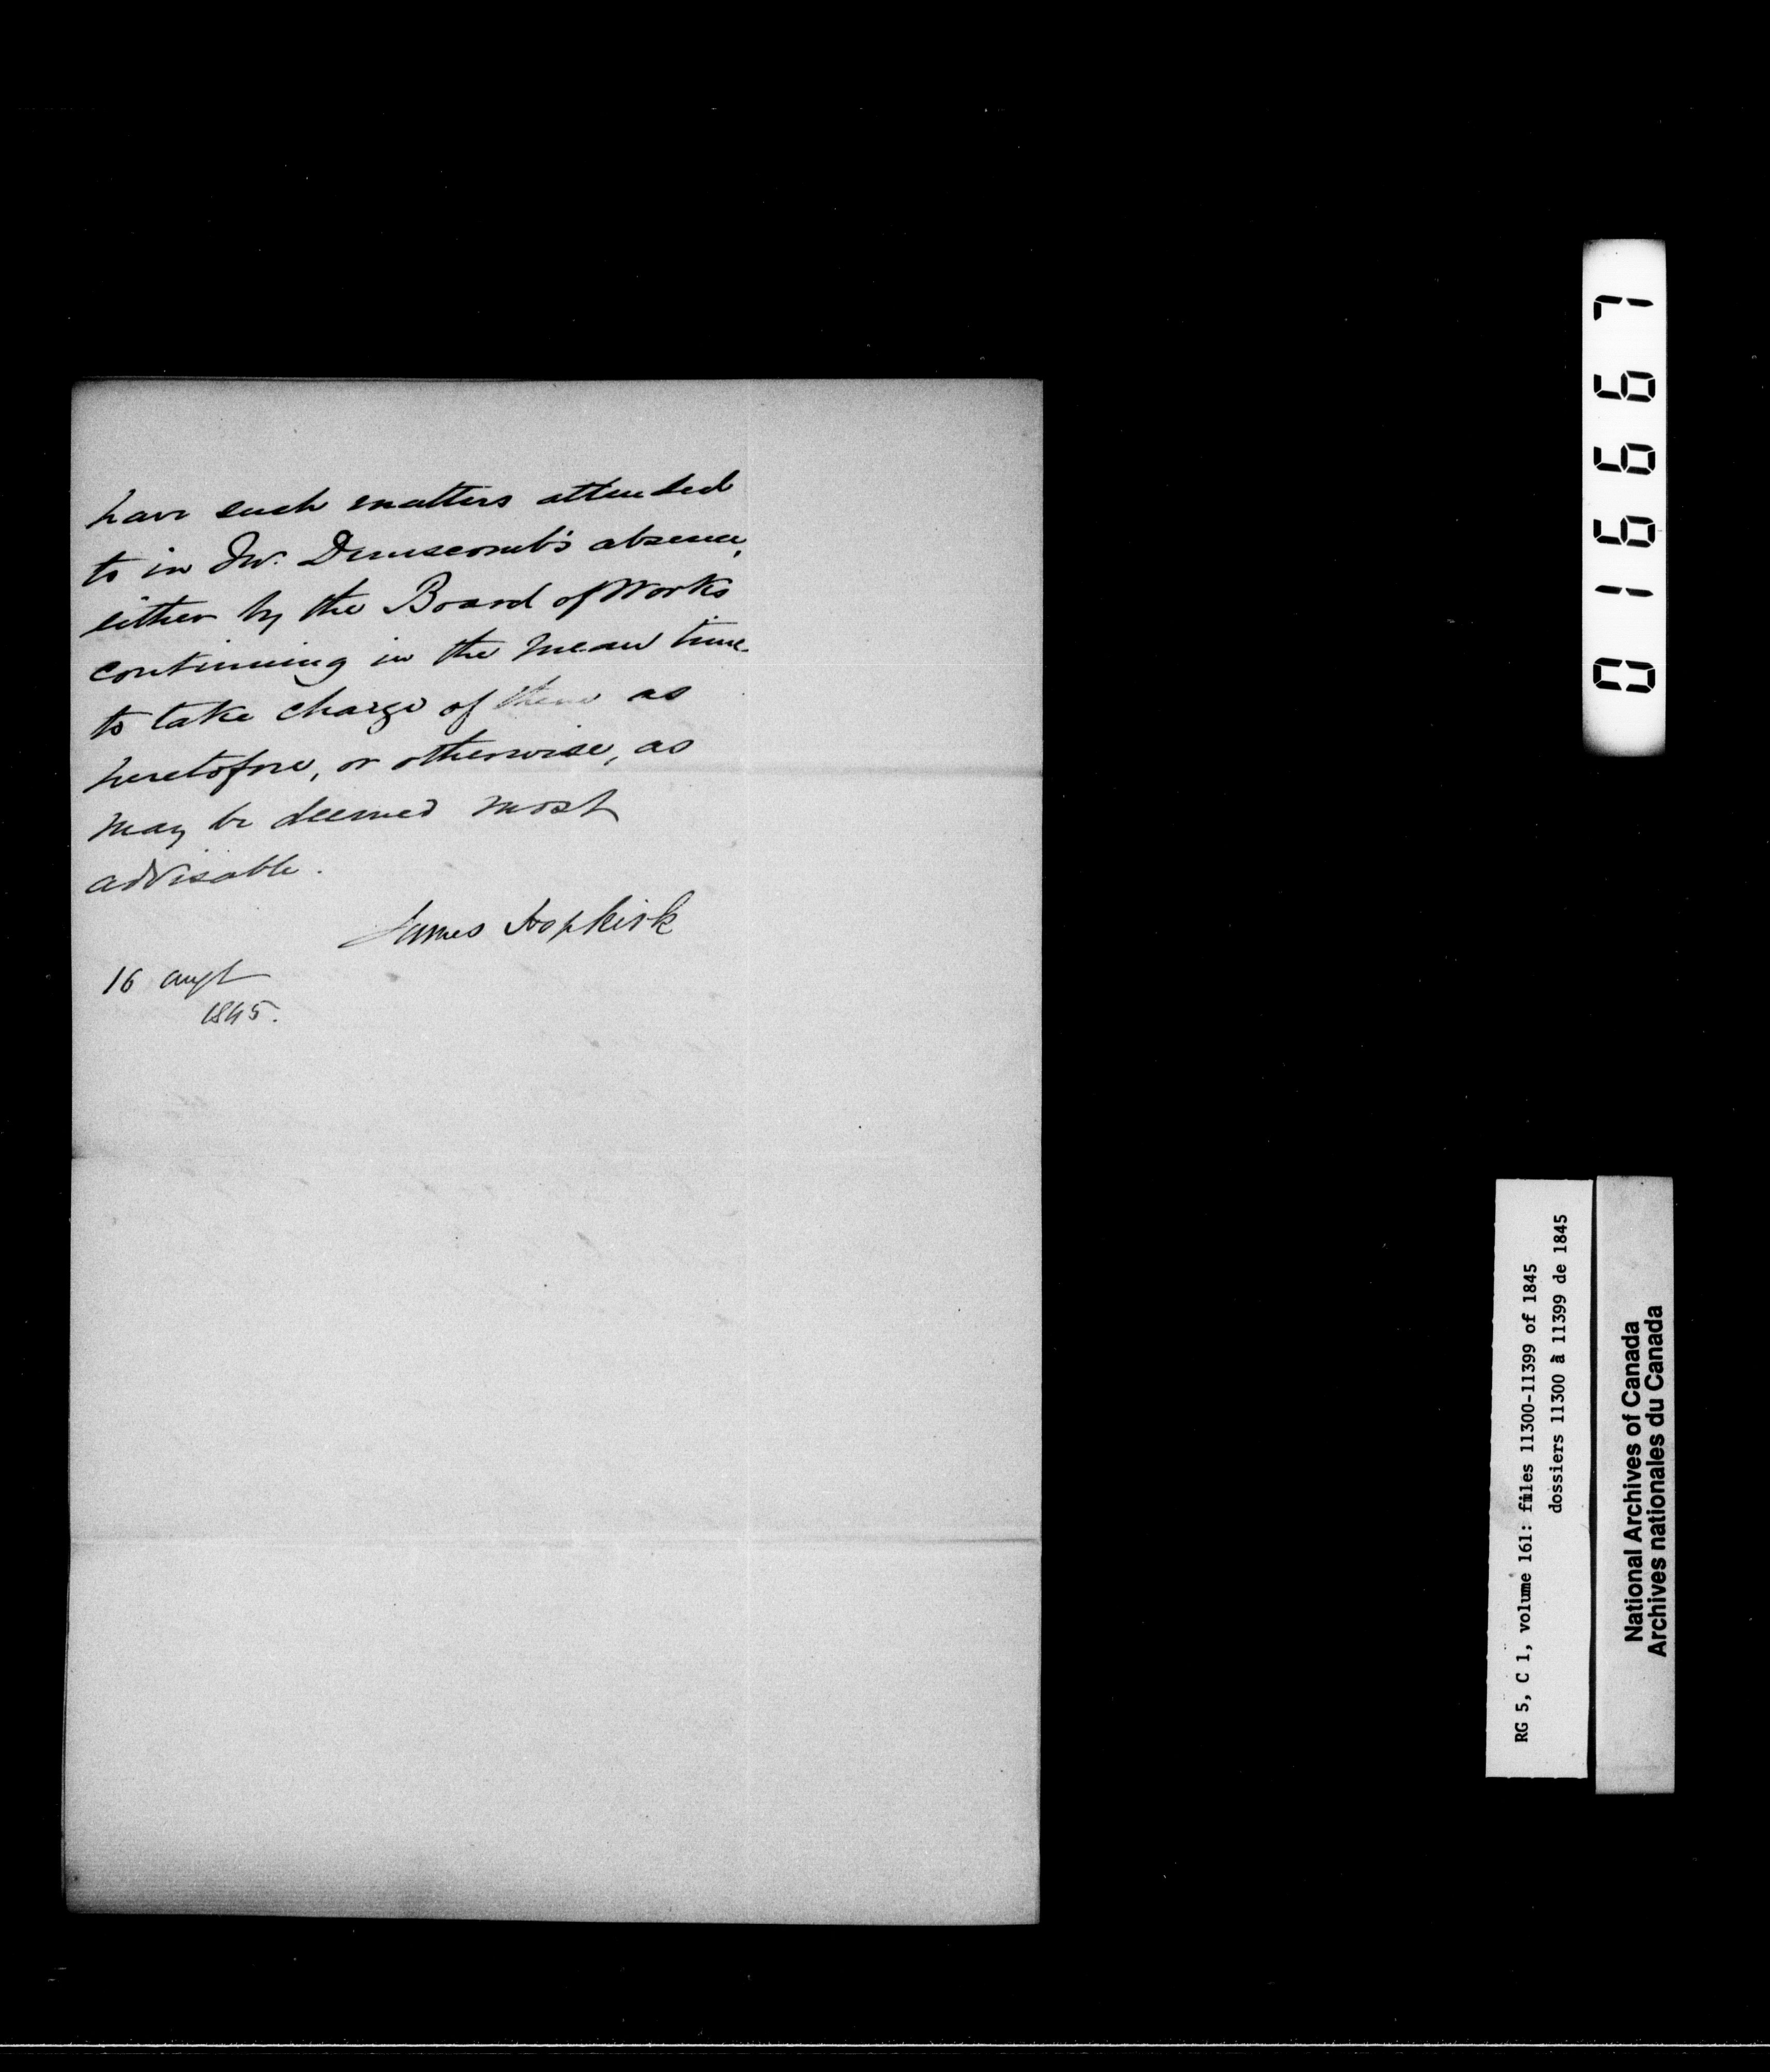 have such matters attended
to in Mr. Dunscomb's absence,
either by the Board of Works
continuing in the mean time
to take charge of them as
heretofore, or otherwise, as
may be deemed most
advisable.
James Hopkirk
16 augt
1845.
016667
RG 5, C 1, volume 161: files 11300-11399 of 1845
dossiers 11300 à 11399 de 1845
National Archives of Canada
Archives nationales du Canada